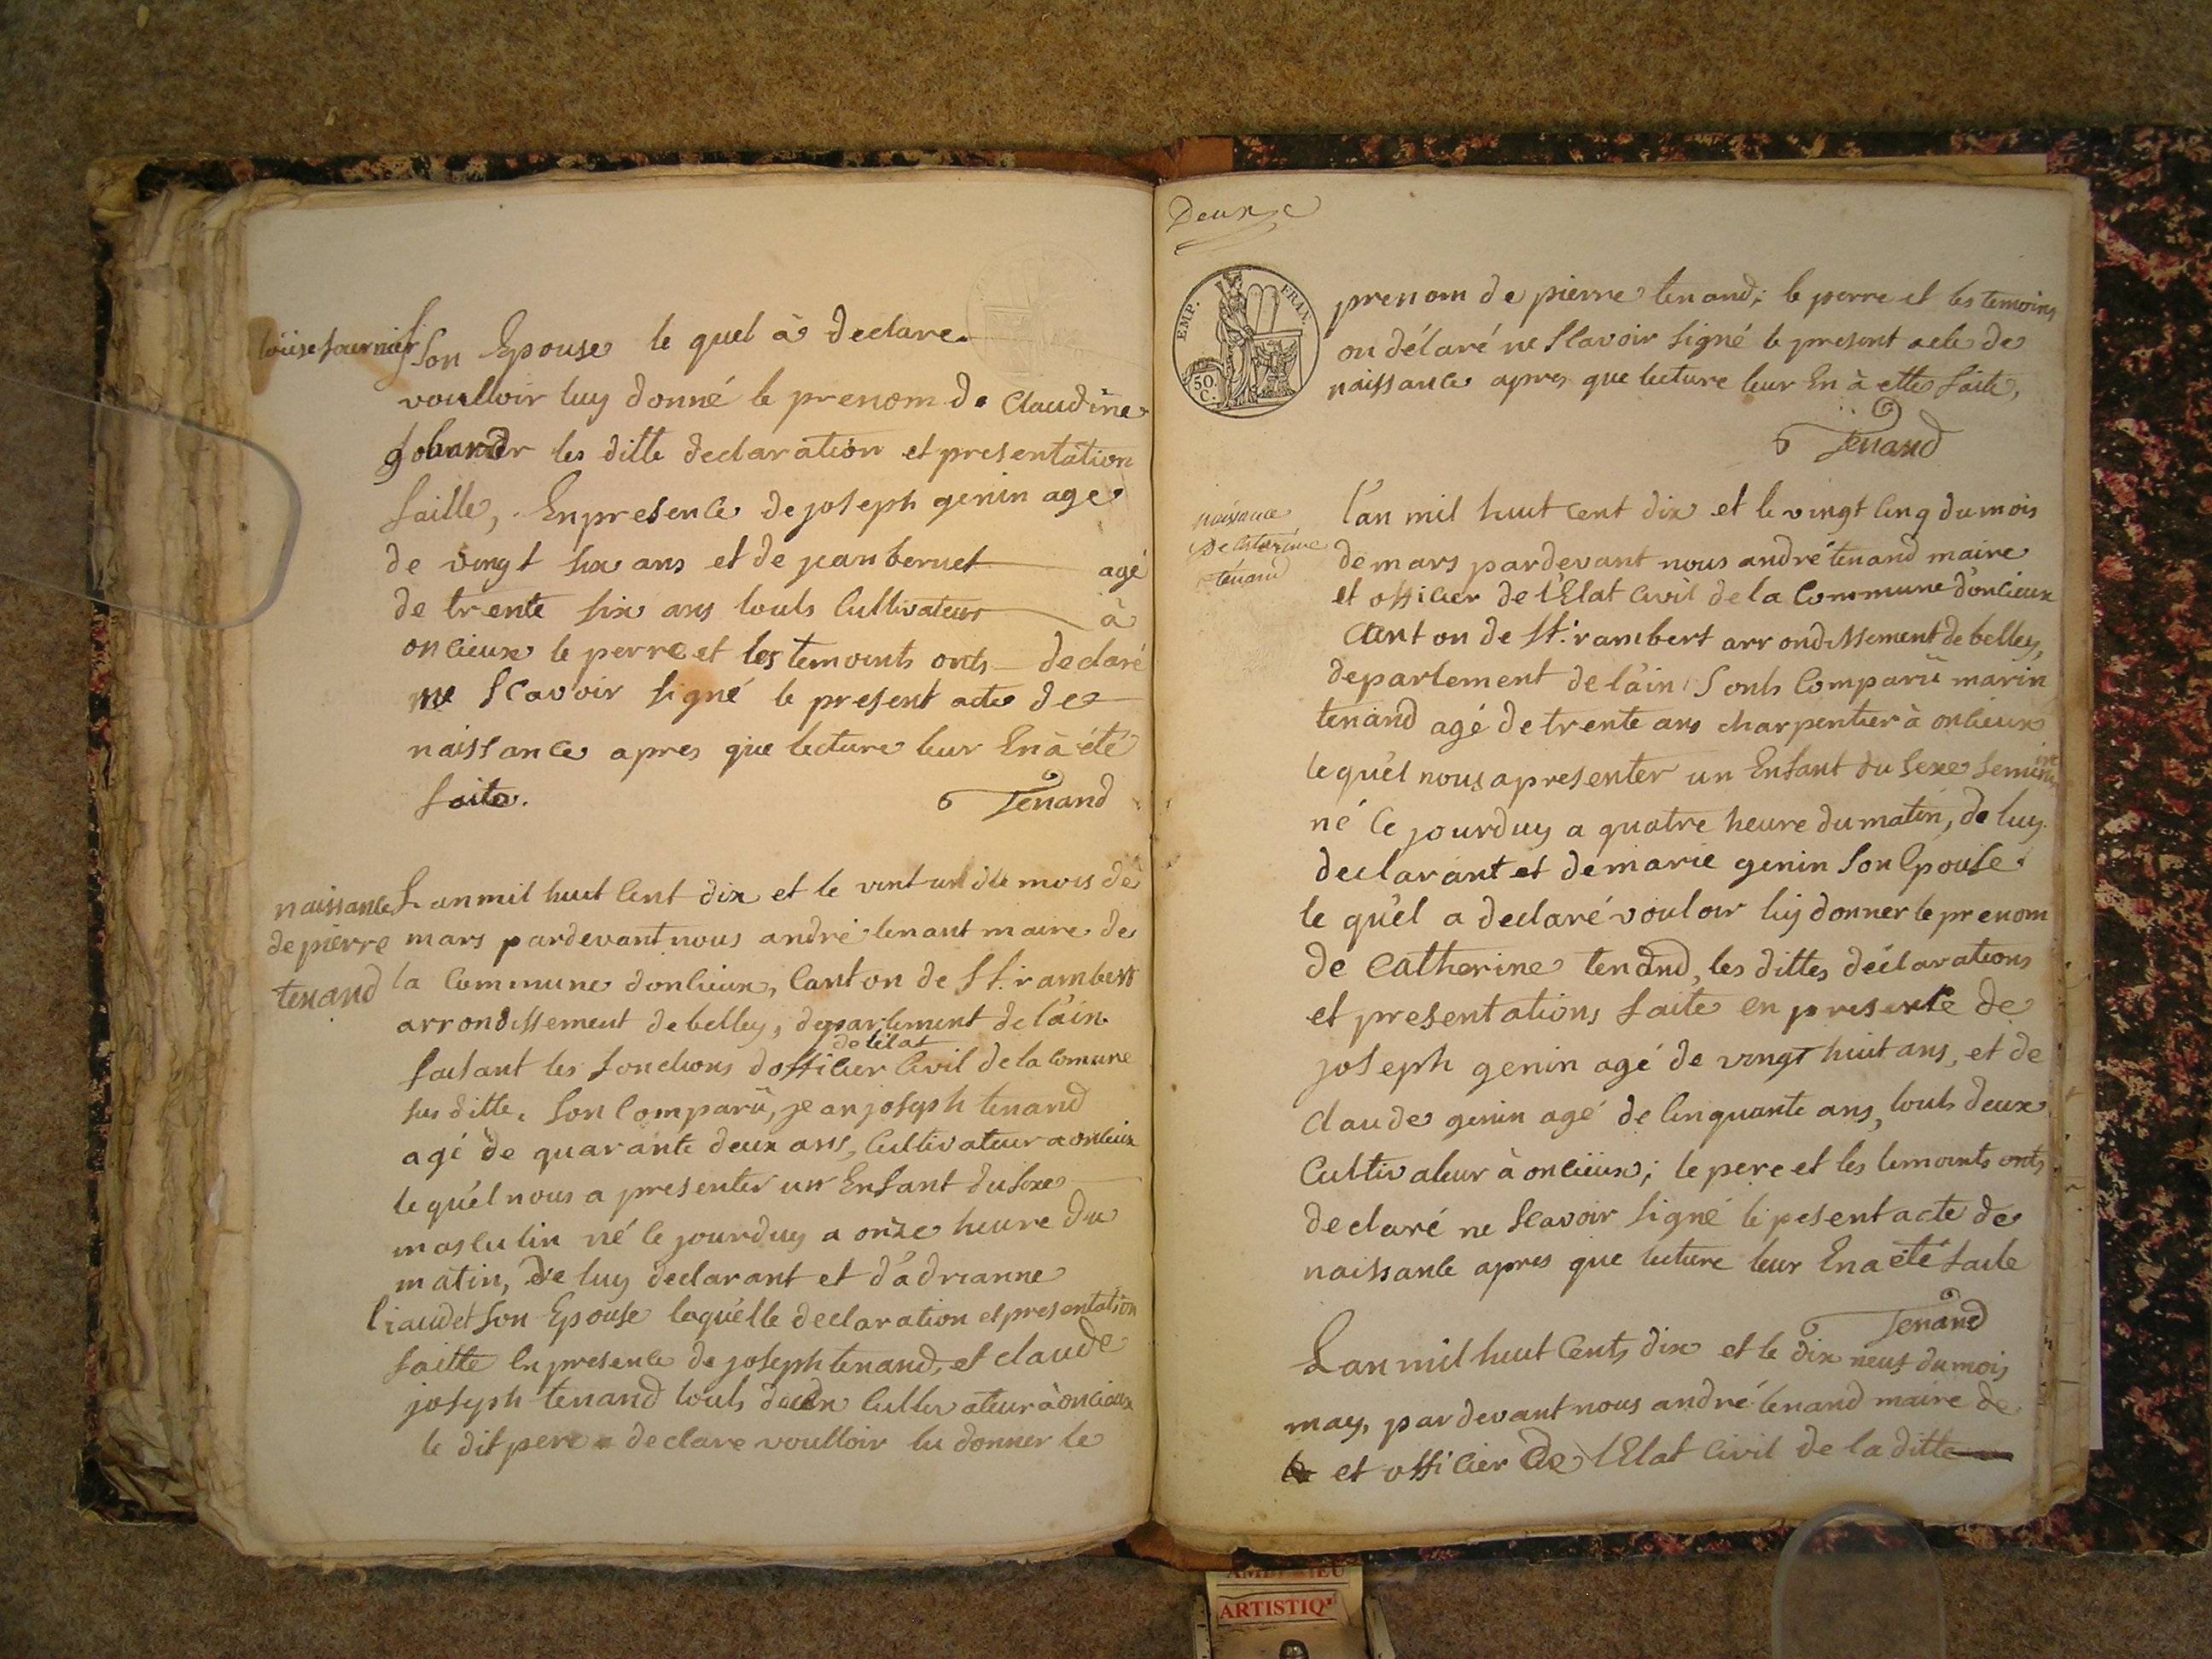 loüise fournier son Epouse le quel à declare
voulloir luy donné le prenom de Claudine
gobander les ditte declaration et presentation
faille, En presence de joseph genin age
de vingt six ans et de jean bernet agé
de trente six ans touts Cultivateurs à
oncieux le perre et les temoints onts declaré
ne scavoir signé le present acte de
naissance apres que lecture leur En à été
faite. Tenand
naissance de pierre tenand
L'an mil huit Cent dix et le vint un du mois de
mars pardevant nous andré tenant maire de
la Commune donlieux, Canton de St. rambert
arrondissement de belley, departement de l'ain
faisant les fonctions d'officier de l'état Civil de la Comune
sus ditte. son Comparü, jean joseph tenand
agé de quarante deux ans, Cultivateur a onlieux
le qu'el nous a presenter un Enfant du sexe
masculin né le jourduy a onze heure du
matin, de luy declarant et d'adrianne
liaudet son Epouse laqu'elle declaration et presentation
faitte En presence de joseph tenand, et claude
joseph tenand touts deux Cultivateur à oncieux
le dit pere declare voulloir lu donner le
Deuxe
EMP. FRAN.
50. C.
prenom de pierre tenand; le perre et les temoins
on délaré ne scavoir signé le present acte de
naissance apres que lecture leur En à ette faite,
Tenand
naissance
De Catarine
tenand
l'an mil huit cent dix et le vingt cinq du mois
de mars pardevant nous andré tenand maire
et officier de l'Etat Civil de la Commune d'oncieux
Canton de St. rambert arrondissement de belley,
departement de l'ain sonts Comparü marin
tenand agé de trente ans charpentier à onlieux
le qu'el nous a presenter un Enfant du sexe feminine
né Ce jourduy a quatre heure du matin, de luy
declarant et de marie genin son Epouse.
le qu'el a declaré vouloir luy donner le prenom
de Catherine tenand, les dittes déclarations
et presentations faite en presente de
joseph genin agé de vingt huit ans, et de
Claude genin agé de Cinquante ans, touts deux
Cultivateur à oncieux; le pere et les temoints onts
declaré ne scavoir signé le pesent acte de
naissance apres que lecture leur En a été faite
Tenand
L'an mil huit Cents dix et le dix neuf du mois
may, pardevant nous andré tenand maire de
et officier de l'Etat Civil de la ditte
ARTISTIQ